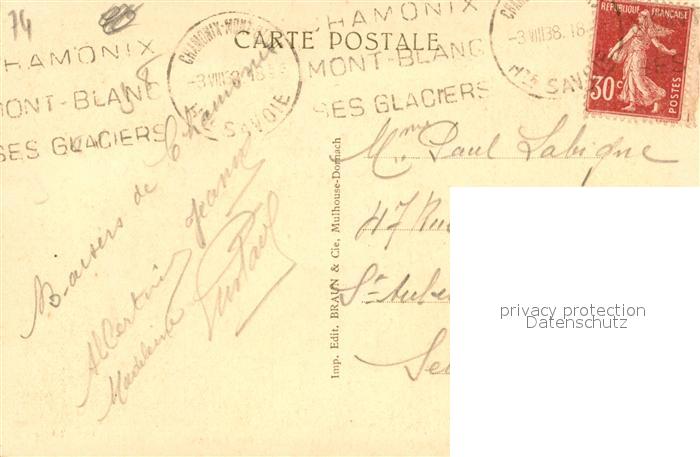 74
CARTE POSTALE
CHAMONIX
MONT-BLANC
SES GLACIERS
CHAMONIX-MONT-
-3 VIII 38
SAVOIE
CHAMONIX
MONT-BLANC
SES GLACIERS
-3 VIII 38. 18-
SAVOIE
RÉPUBLIQUE FRANÇAISE
30c
POSTES
Baisers de Chamonix
Albertine Jeanne
Madeleine Gustave
Imp. Edit. BRAUN & Cie, Mulhouse-Dornach
Mme Paul Labigne
47 Rue
St Auber
Sei
privacy protection
Datenschutz